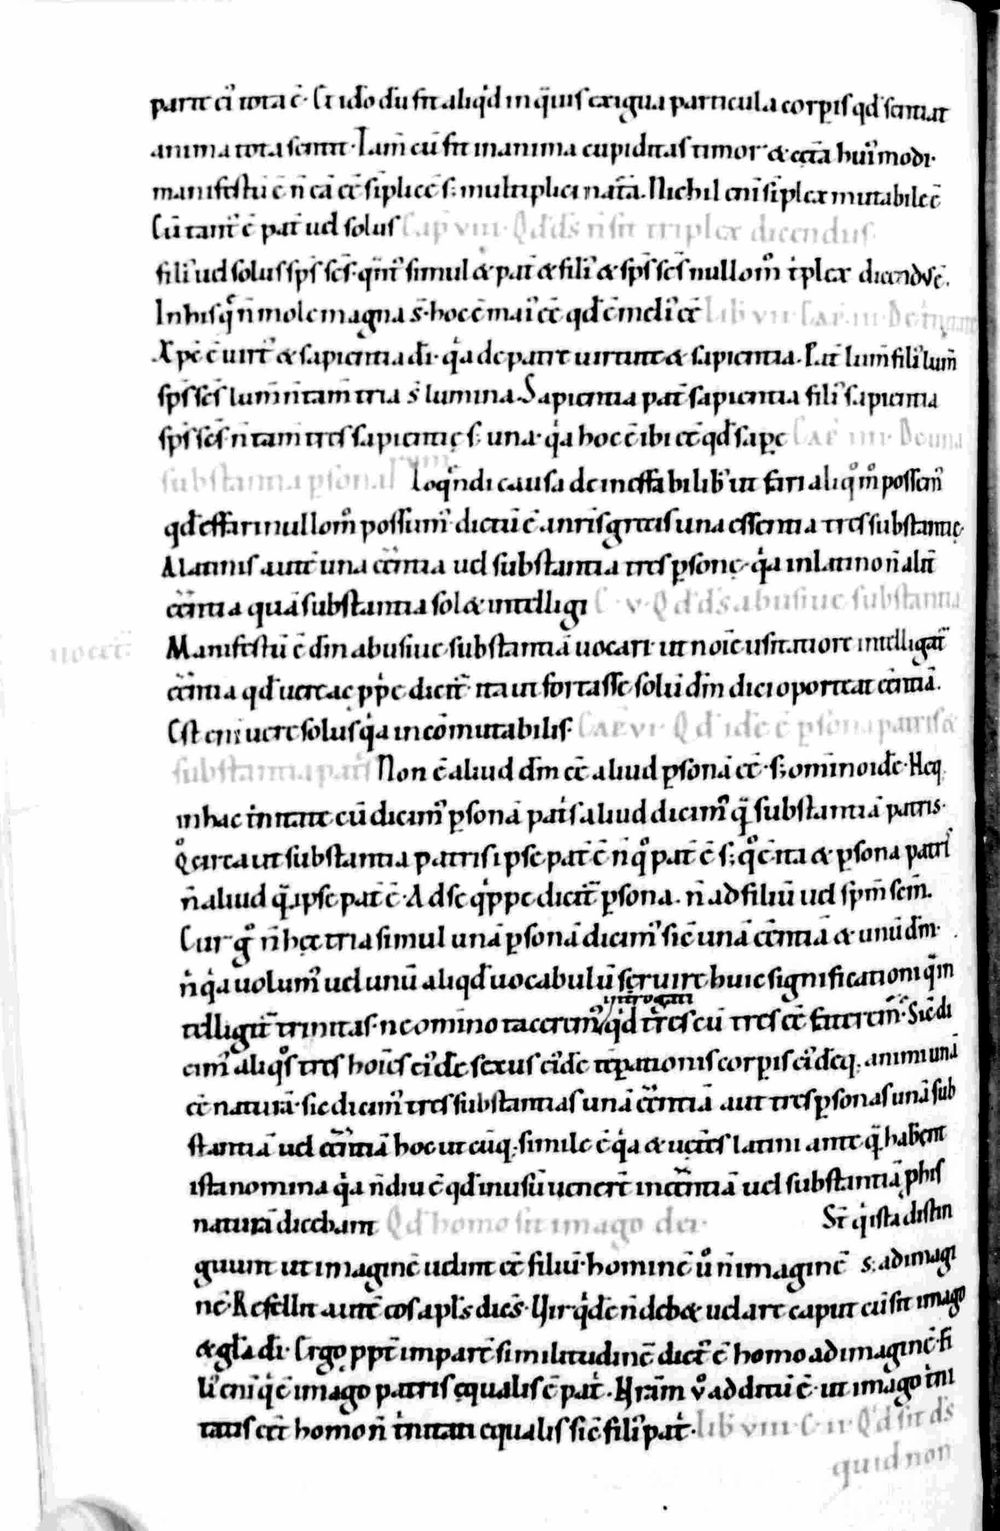 parte ei' tota ē. Et iđo dū fit aliq'd in q̄uis exigua particula corp̄is qđ sentiat
anima tota sentit. Iam̄ cū sit in anima cupiditas timor & cēt̄a hui'modi.
manifestū ē n̄ eā eē siplicē s; multiplici nat̄a. Nichil eni siplex mutabile ē
Cū tant' ē pat̄ uel solus Cap̄ viii. Qđ d̄s n̄ sit triplex dicendus.
fili' uel solus sp̄s sc̄s. q̄nt' simul & pat̄ & fili' & sp̄s sc̄s nullom° t'plex dicend' ē.
In his q° n̄ mole magna s̄. hoc ē mai' eē qđ ē meli' eē Lib̄ vii Cap̄ iii. De
Xp̄c ē uirt' & sapientia dī. q'a de patre uirtute & sapientia. Pat̄ lum̄ fili' lum̄
sp̄s sc̄s lum̄ n̄ tam̄ tria s̄ lumina. Sapientia pat̄ sapientia fili' sapientia
sp̄s sc̄s. n̄ tam̄ tres sapientiȩ s; una. q'a hoc ē ibi eē qđ sap̄e Cap̄ iiii. De una
substantia p̄sonar̄ Loq̄ndi causa de ineffabilib' ut fari aliq°m° possem'
qđ effari nullom° possum' dictū ē a nr̄is grecis una essentia tres substantiȩ.
A latinis aut̄ una eēntia uel substantia tres p̄sonȩ. q'a in latino n̄ alit̄
eēntia quā substantia sol& intelligi C. v. Qđ d̄s abusiue substantia
uocet̄. Manifestū ē dm̄ abusiue substantiā uocari ut noīe usitatiore intelligat̄
eēntia qđ uere ac p̄p̄e dicit̄ ita ut fortasse solū dm̄ dici oporteat eēntiā.
Est eni uere solus q'a incōmutabilis. Cap̄ vi. Qđ idē ē p̄sona patris &
substantia patris Non ē aliud dm̄ eē aliud p̄sonā eē. s; omīno idē. Neq;
in hac t'nitate cū dicim' p̄sonā pat'is aliud dicim' q̄ substantiā patris.
Q°circa ut substantia patris ipse pat̄ ē n̄ q° pat̄ ē s; q° ē. ita & p̄sona patris
n̄ aliud q̄ ipse pat̄ ē. Ad se q'ppe dicit̄ p̄sona. n̄ ad filiū uel sp̄m sc̄m.
Cur g° n̄ hȩc tria simul unā p̄sonā dicim' sic unā eēntiā & unū dm̄.
n' q'a uolum' uel unū aliqđ uocabulū seruire huic significationi q̄ in
telligit̄ trinitas. ne omīno tacerem' int̄rogati q'd tres cū tres eē fateremur. Sic di
cim' aliq°s tres hoīes ei'dē sexus ei'dē tēp̄ationis corp̄is ei'dēq; animi unā
eē naturā. sic dicim' tres substantias unā eēntiā aut tres p̄sonas unā sub
stantiā uel eēntiā hoc utcūq; simile ē q'a & uet̄es latini ante q̄ hab̄ent
ista nomina q'a n̄ diu ē qđ in usū uenert̄ in eēntiā uel substantiā p̄his
naturā dicebant Qđ homo sit imago dei. St̄ q' ista distin
guunt ut imaginē uelint eē filiū. hominē u° n̄ imaginē s; ad imagi
nē. Refellit aut̄ eos apl̄s dicēs. Uir q'dē n̄ deb& uelare caput cū sit imago
& gl̄a dī. Ergo p̄pt̄ imparē similitudinē dict' ē homo ad imaginē. fi
li' eni q' ē imago patris equalis ē pat'. Nr̄am u° additū ē. ut imago t'ni
tatis eēt homo n̄ t'nitati equalis sic fili' pat'. Lib̄ viii. C. ii. Q'd sit d̄s
quid non